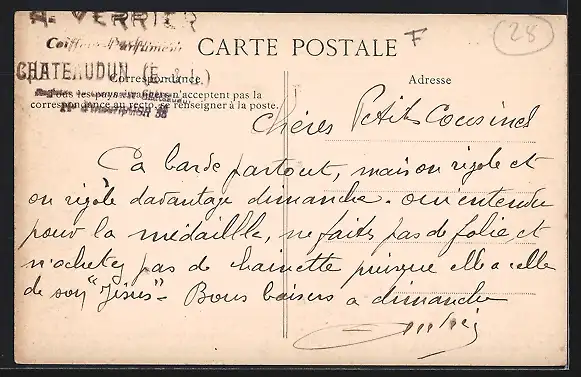 A. VERRIER
Coiffeur Parfumeur
CHATEAUDUN (E.-&-L.)
CARTE POSTALE
F
28
Correspondance
Adresse
Tous les pays étrangers n'acceptent pas la
correspondance au recto, se renseigner à la poste.
Chères Petits Cousines
Ca barde partout, mais on rigole et
on rigole davantage dimanche. oui entendu
pour la médaille, ne faites pas de folie, et
n'achetez pas de chainette puisque elle a celle
de son "Jésus" - Bons baisers a dimanche